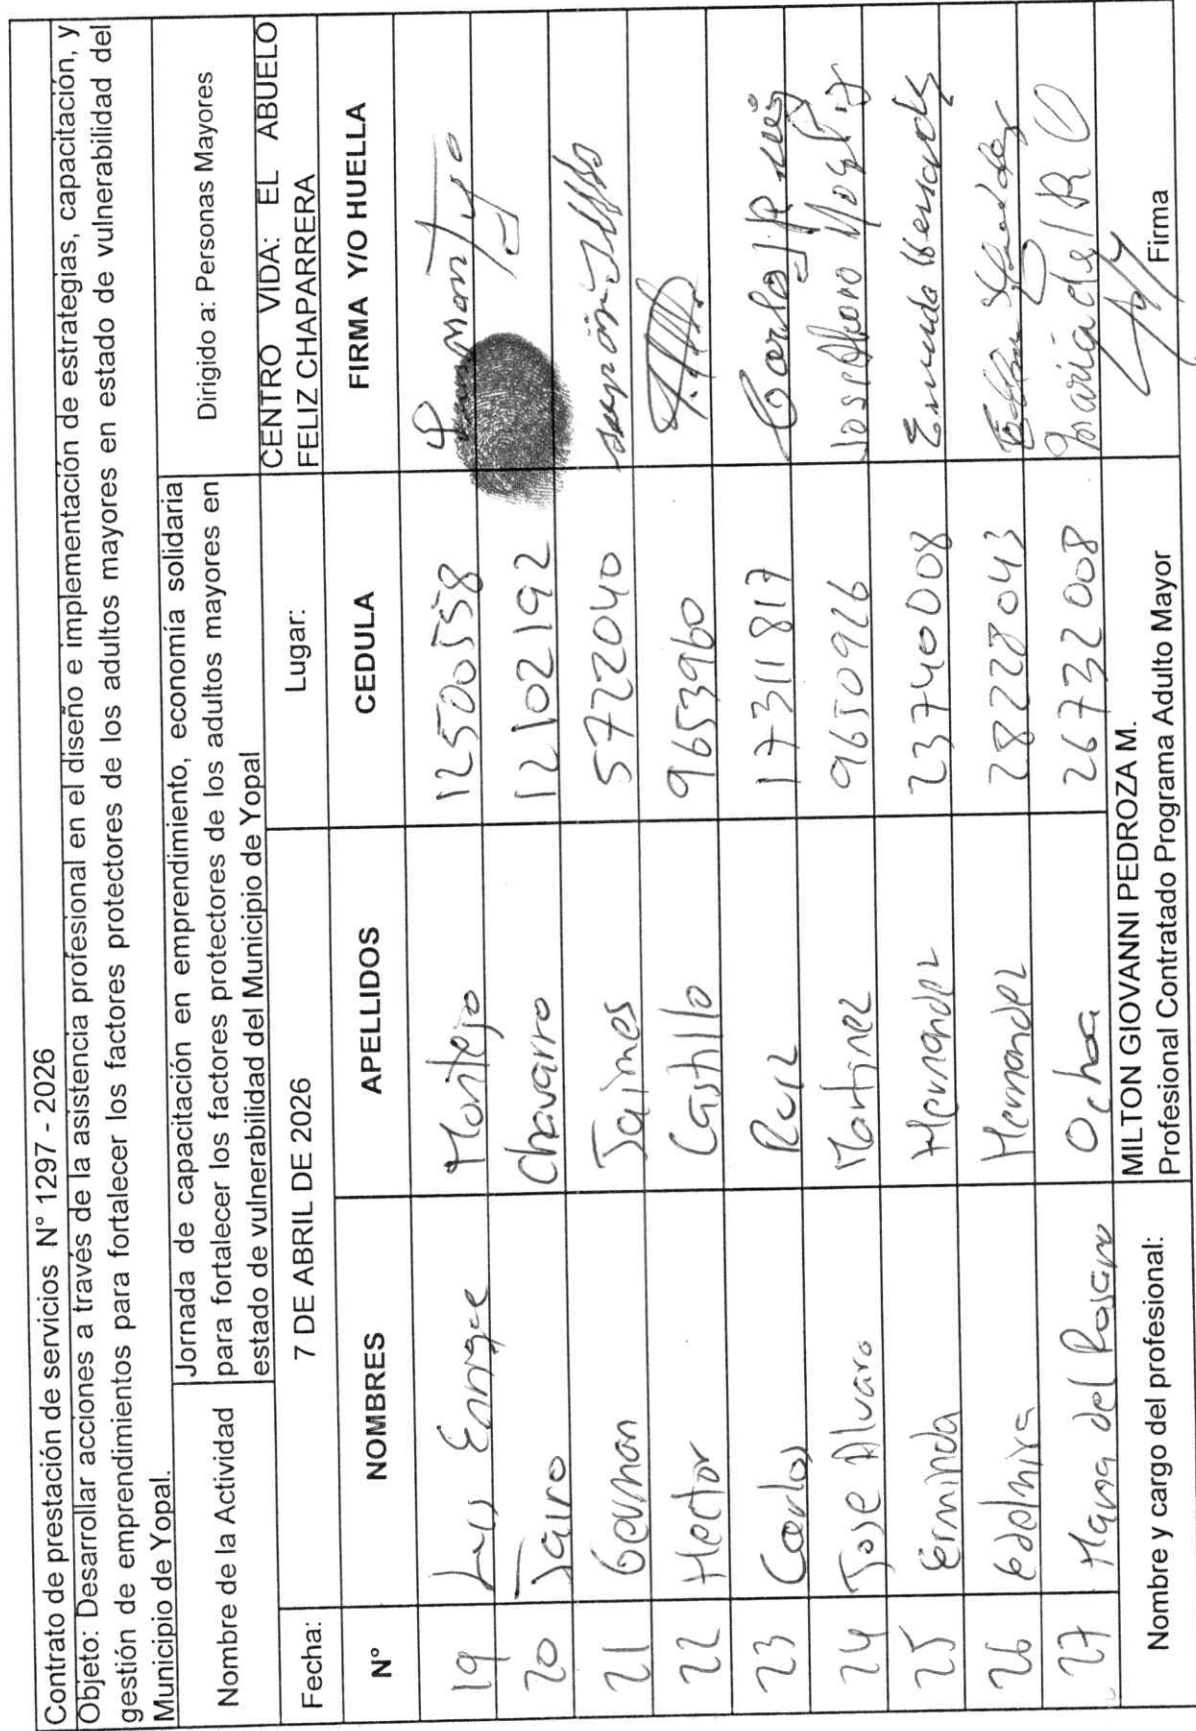 Contrato de prestación de servicios N° 1297 - 2026
Objeto: Desarrollar acciones a través de la asistencia profesional en el diseño e implementación de estrategias, capacitación, y
gestión de emprendimientos para fortalecer los factores protectores de los adultos mayores en estado de vulnerabilidad del
Municipio de Yopal.
Nombre de la Actividad
Jornada de capacitación en emprendimiento, economía solidaria
para fortalecer los factores protectores de los adultos mayores en
estado de vulnerabilidad del Municipio de Yopal
Dirigido a: Personas Mayores
Fecha: 7 DE ABRIL DE 2026 Lugar: CENTRO VIDA: EL ABUELO
FELIZ CHAPARRERA
N° NOMBRES APELLIDOS CEDULA FIRMA Y/O HUELLA
19 Luis Enrique Montejo 12500558
20 Jairo Chavarro 12102192
21 German Jaimes 5722040
22 Hector Castillo 9653960
23 Carlos Ruiz 17311817 Carlos J Ruiz
24 Jose Alvaro Martinez 9650926
25 Erminda Hernandez 23740008
26 Edelmira Hernandez 28228043
27 Maria del Rosario Ochoa 26732008 maria del R O
Nombre y cargo del profesional:
MILTON GIOVANNI PEDROZA M.
Profesional Contratado Programa Adulto Mayor
Firma